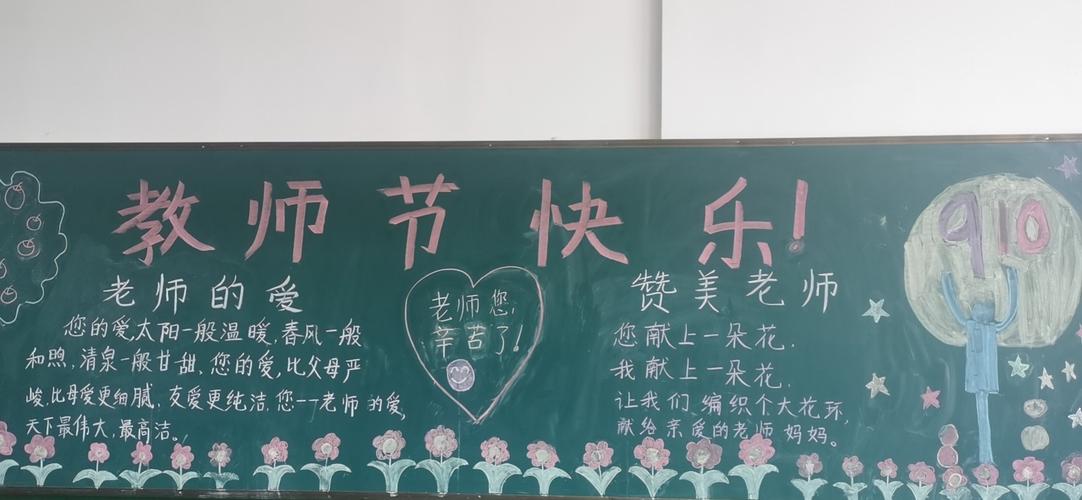 教师节快乐!
老师的爱
您的爱,太阳一般温暖,春风一般
和煦,清泉一般甘甜,您的爱,比父母严
峻,比母爱更细腻,友爱更纯洁,您一一老师的爱,
天下最伟大,最高洁。
老师您
辛苦了!
赞美老师
您献上一朵花,
我献上一朵花,
让我们编织个大花环,
献给亲爱的老师妈妈。
910